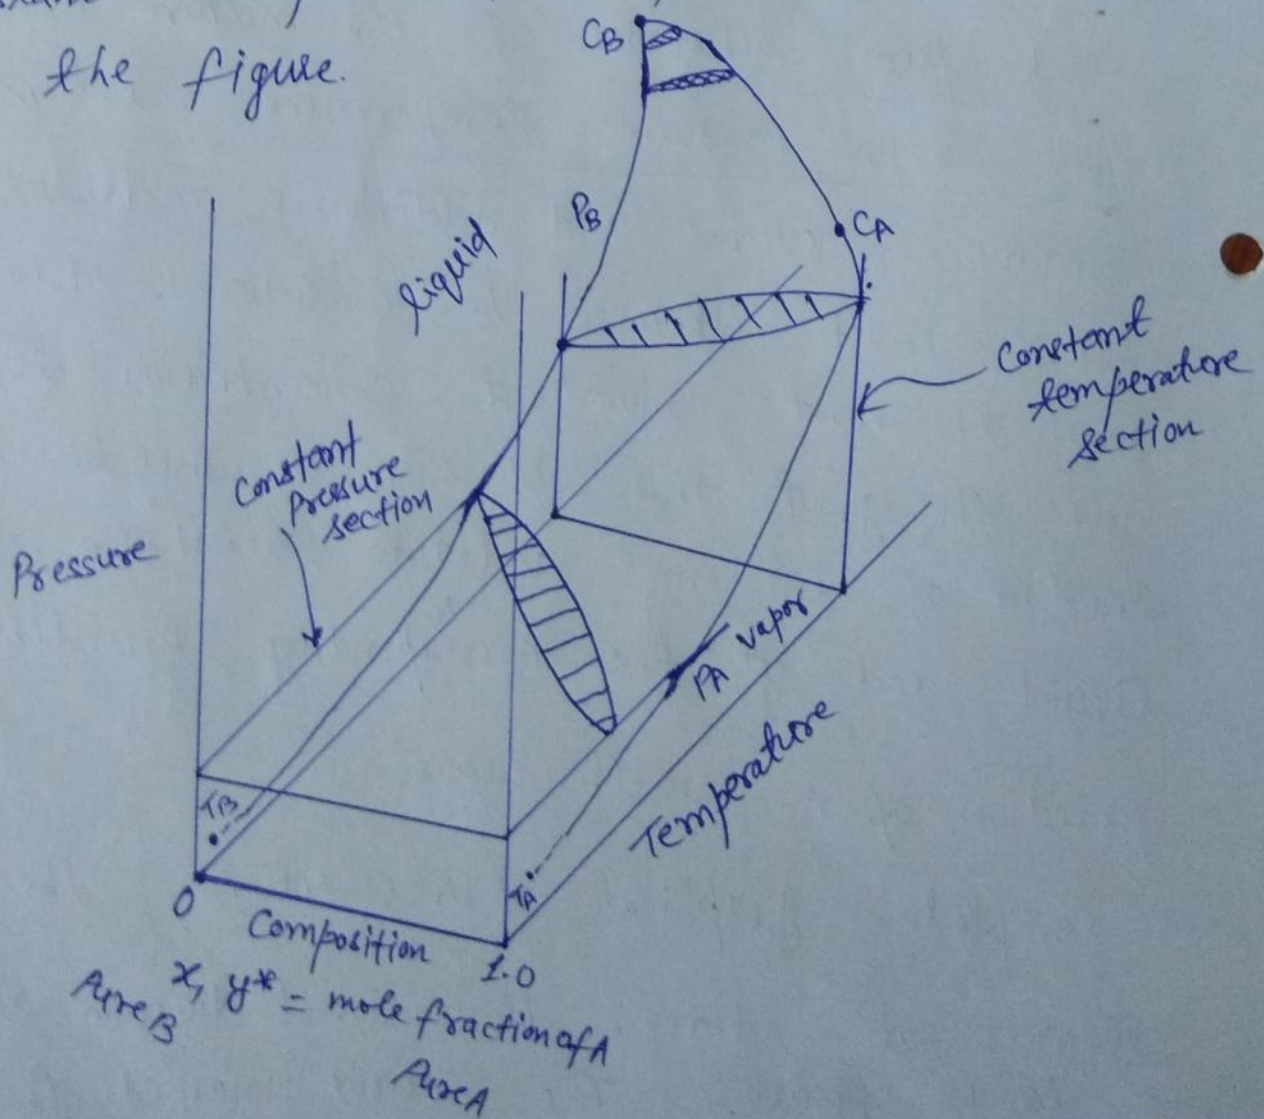 the figure.
CB
PB
CA
liquid
Constant
temperature
section
Constant
Pressure
section
Pressure
PA vapor
Temperature
TB
TA
0
Composition
1.0
x, y* = mole fraction of A
Pure B
Pure A